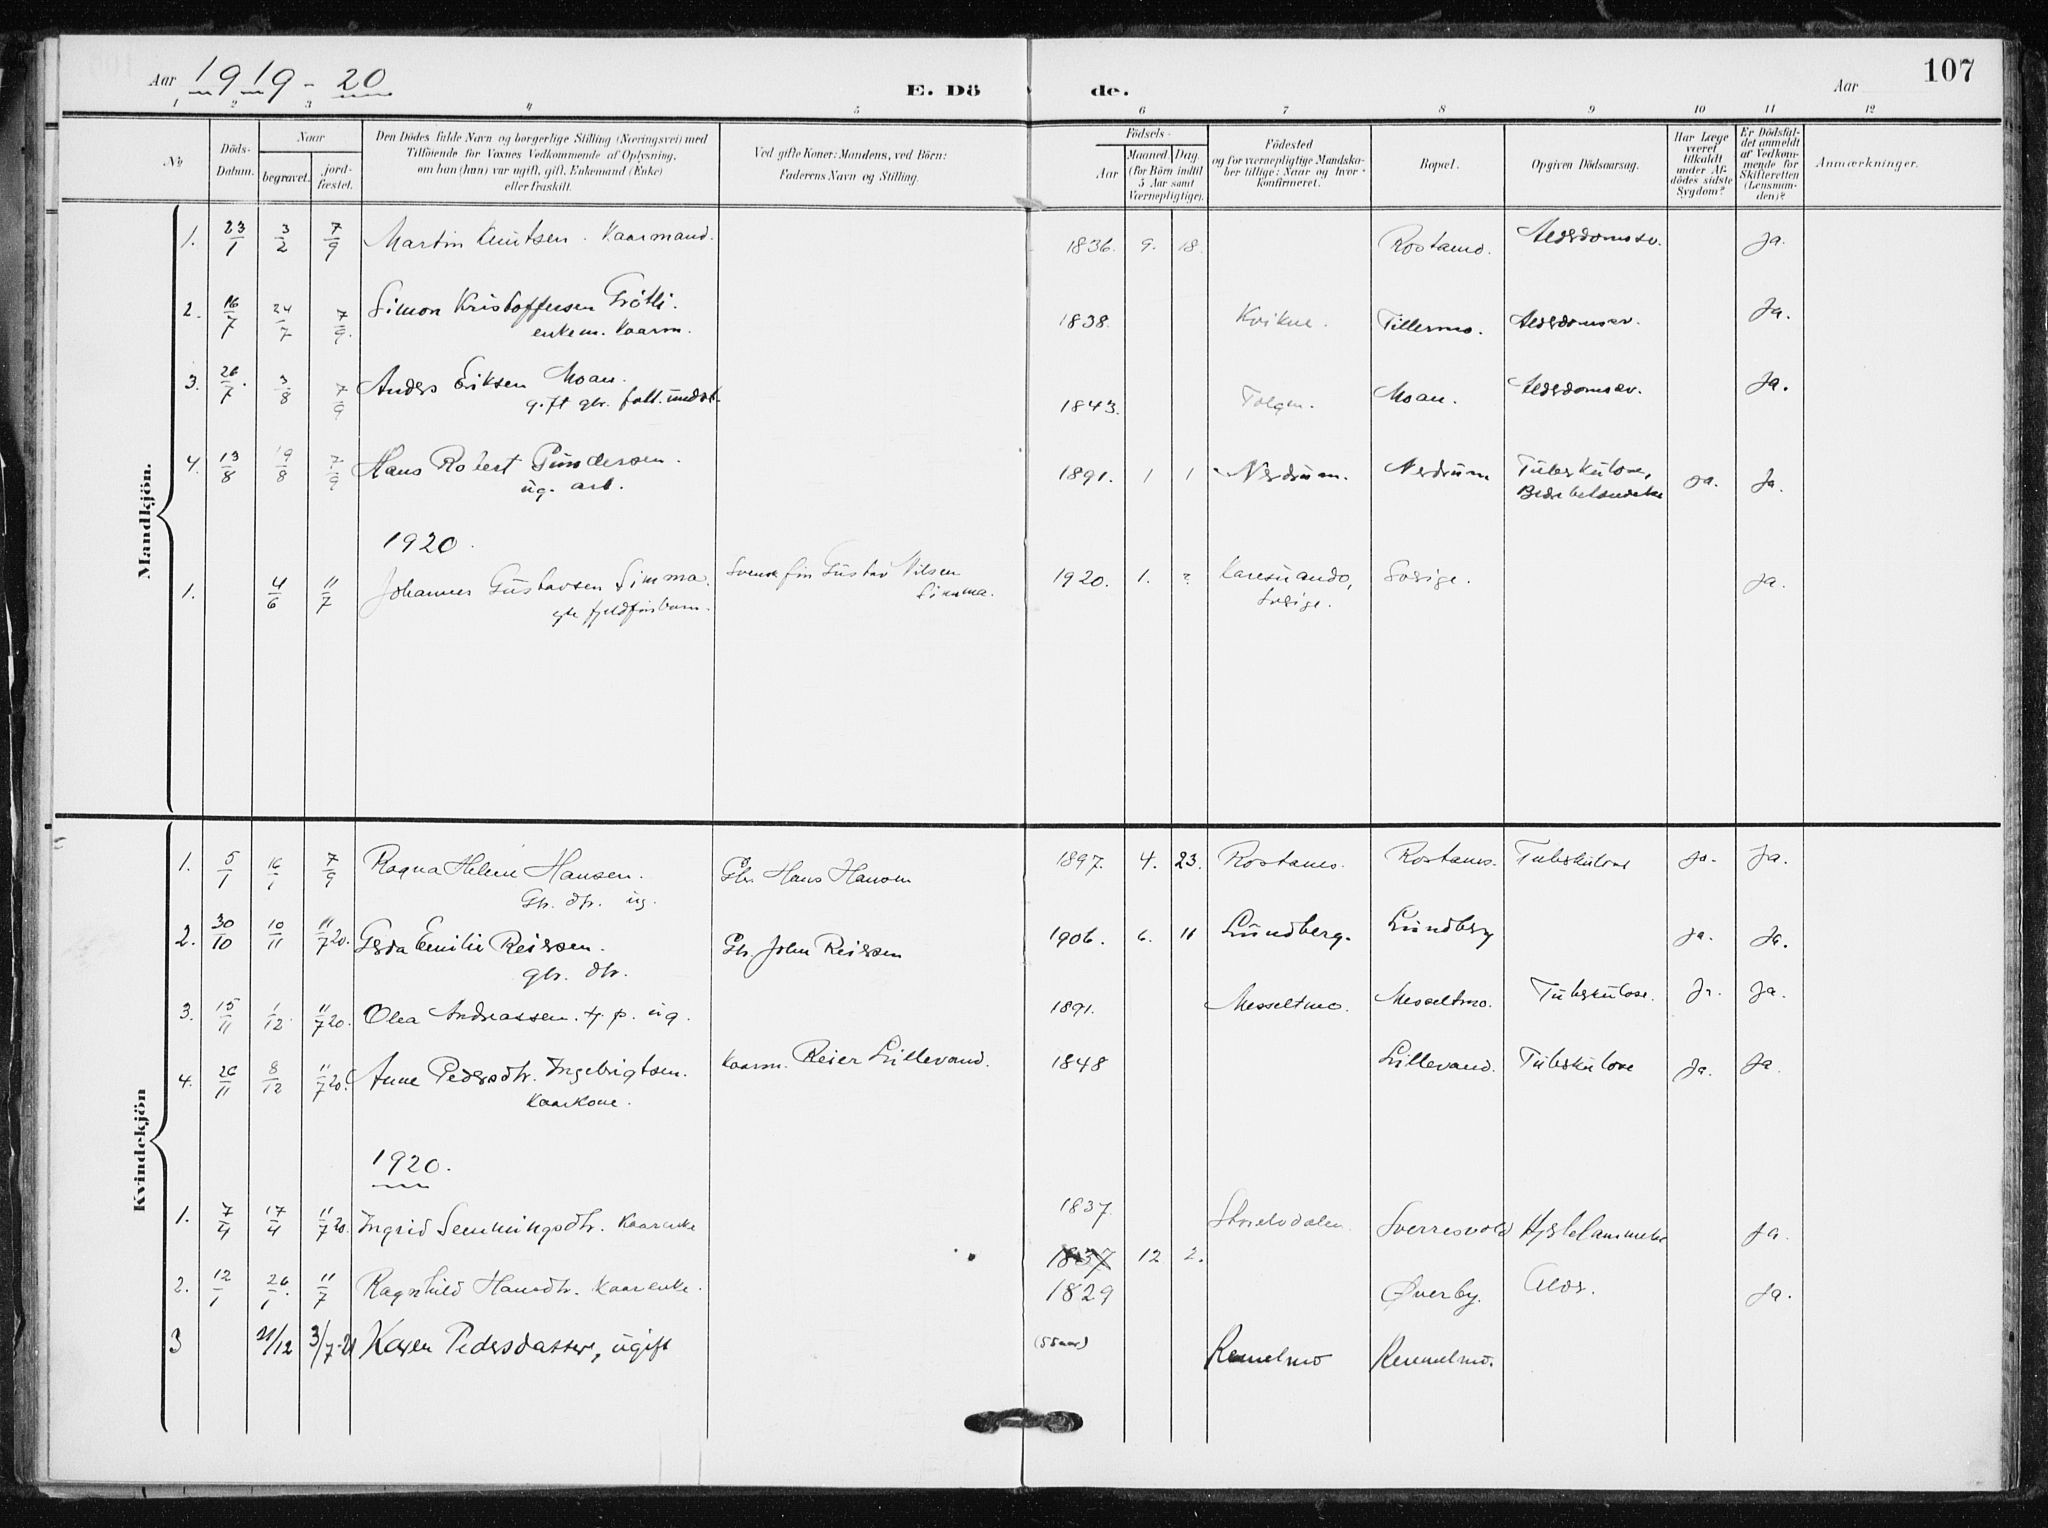 Aar 1919 - 20
E. Dö de.
Aar
107
1 2 3 4 5 6 7 8 9 10 11 12
No
Döds-
Datum.
Naar
begravet.
jord-
fæstet.
Den Dödes fulde Navn og borgerlige Stilling (Næringsvei) med
Tilföiende for Voxnes Vedkommende af Oplysning,
om han (hun) var ugift, gift, Enkemand (Enke)
eller fraskilt.
Ved gifte Koner: Mandens, ved Börn:
Faderens Navn og Stilling.
Födsels-
Aar
Maaned. Dag.
(for Börn indtil
5 Aar samt
Værnepligtige).
Födested
og for værnepligtige Mandska-
ber tillige: Naar og hvor
konfirmeret.
Bopæl.
Opgiven Dödsaarsag.
Har Læge
været
tilkaldt
under Af-
dödes sidste
Sygdom?
Er Dödsfal-
det anmeldt
af Vedkom-
mende for
Skifteretten
(Lensman-
den)?
Anmærkninger.
Mandkjön.
1. 23/1 3/2 7/9 Martin Knutsen. Kaarmand. 1836. 9. 18. Rostamo. Alderdomssv. Ja.
2. 16/7 24/7 7/9. Simon Kristoffersen Grötli. 1838. Kvikne. Tillermo. Alderdomssv. Ja.
enkem. Kaarm.
3. 26/7. 3/8 7/9 Anders Eriksen Moan. 1843. Tolgen. Moan. Alderdomssv. Ja.
gift gbr. fatt. underst.
4. 13/8 19/8 7/9 Hans Robert Gundersen. 1891. 1 1 Nerdrum. Nerdrum Tuberkulose, ja. Ja.
ug. arb.
1920.
1. 4/6 11/7 Johannes Gustavsen Simma. Svensk fin Gustav Nilsen 1920. 1. ? Karesuando, Sverige. Ja.
Simma.
Sverige.
Kvindekjön
1. 5/1 16/1 7/9 Ragna Helene Hansen. Gbr. Hans Hansen 1897. 4. 23. Rostamo. Rostamo. Tuberkulose ja. Ja.
Gbr. dtr. ug.
2. 30/10 10/11 11/7 20. Gerda Emilie Reiersen. Gbr. John Reiersen 1906. 6. 11 Lundberg. Lundberg ja. Ja.
gbr. dtr.
3. 15/11 1/12. 11/7 20. Olea Andreassen. tj. p. ug. 1891. Messeltmo. Messeltmo. Tuberkulose. Ja. Ja.
4. 26/11 8/12 11/7 20. Anne Pedersdtr. Ingebrigtsen. Kaarm. Reier Lillevand. 1848 Lillevand. Tuberkulose Ja. Ja.
Kaarkone.
1920.
1. 7/4 17/4 11/7 20. Ingrid Semmingsdtr. Kaarenke 1837. Storelvdalen. Sverresvold Hjertelammelse Ja.
1837 12 2.
2. 12/1 26/1. 11/7 Ragnhild Hansdtr. Kaarenke. 1829 Øverby. Alder. Ja.
3 21/12 3/7-21 Karen Pedersdatter, ugift (55 aar) Remelmo Remmelmo.